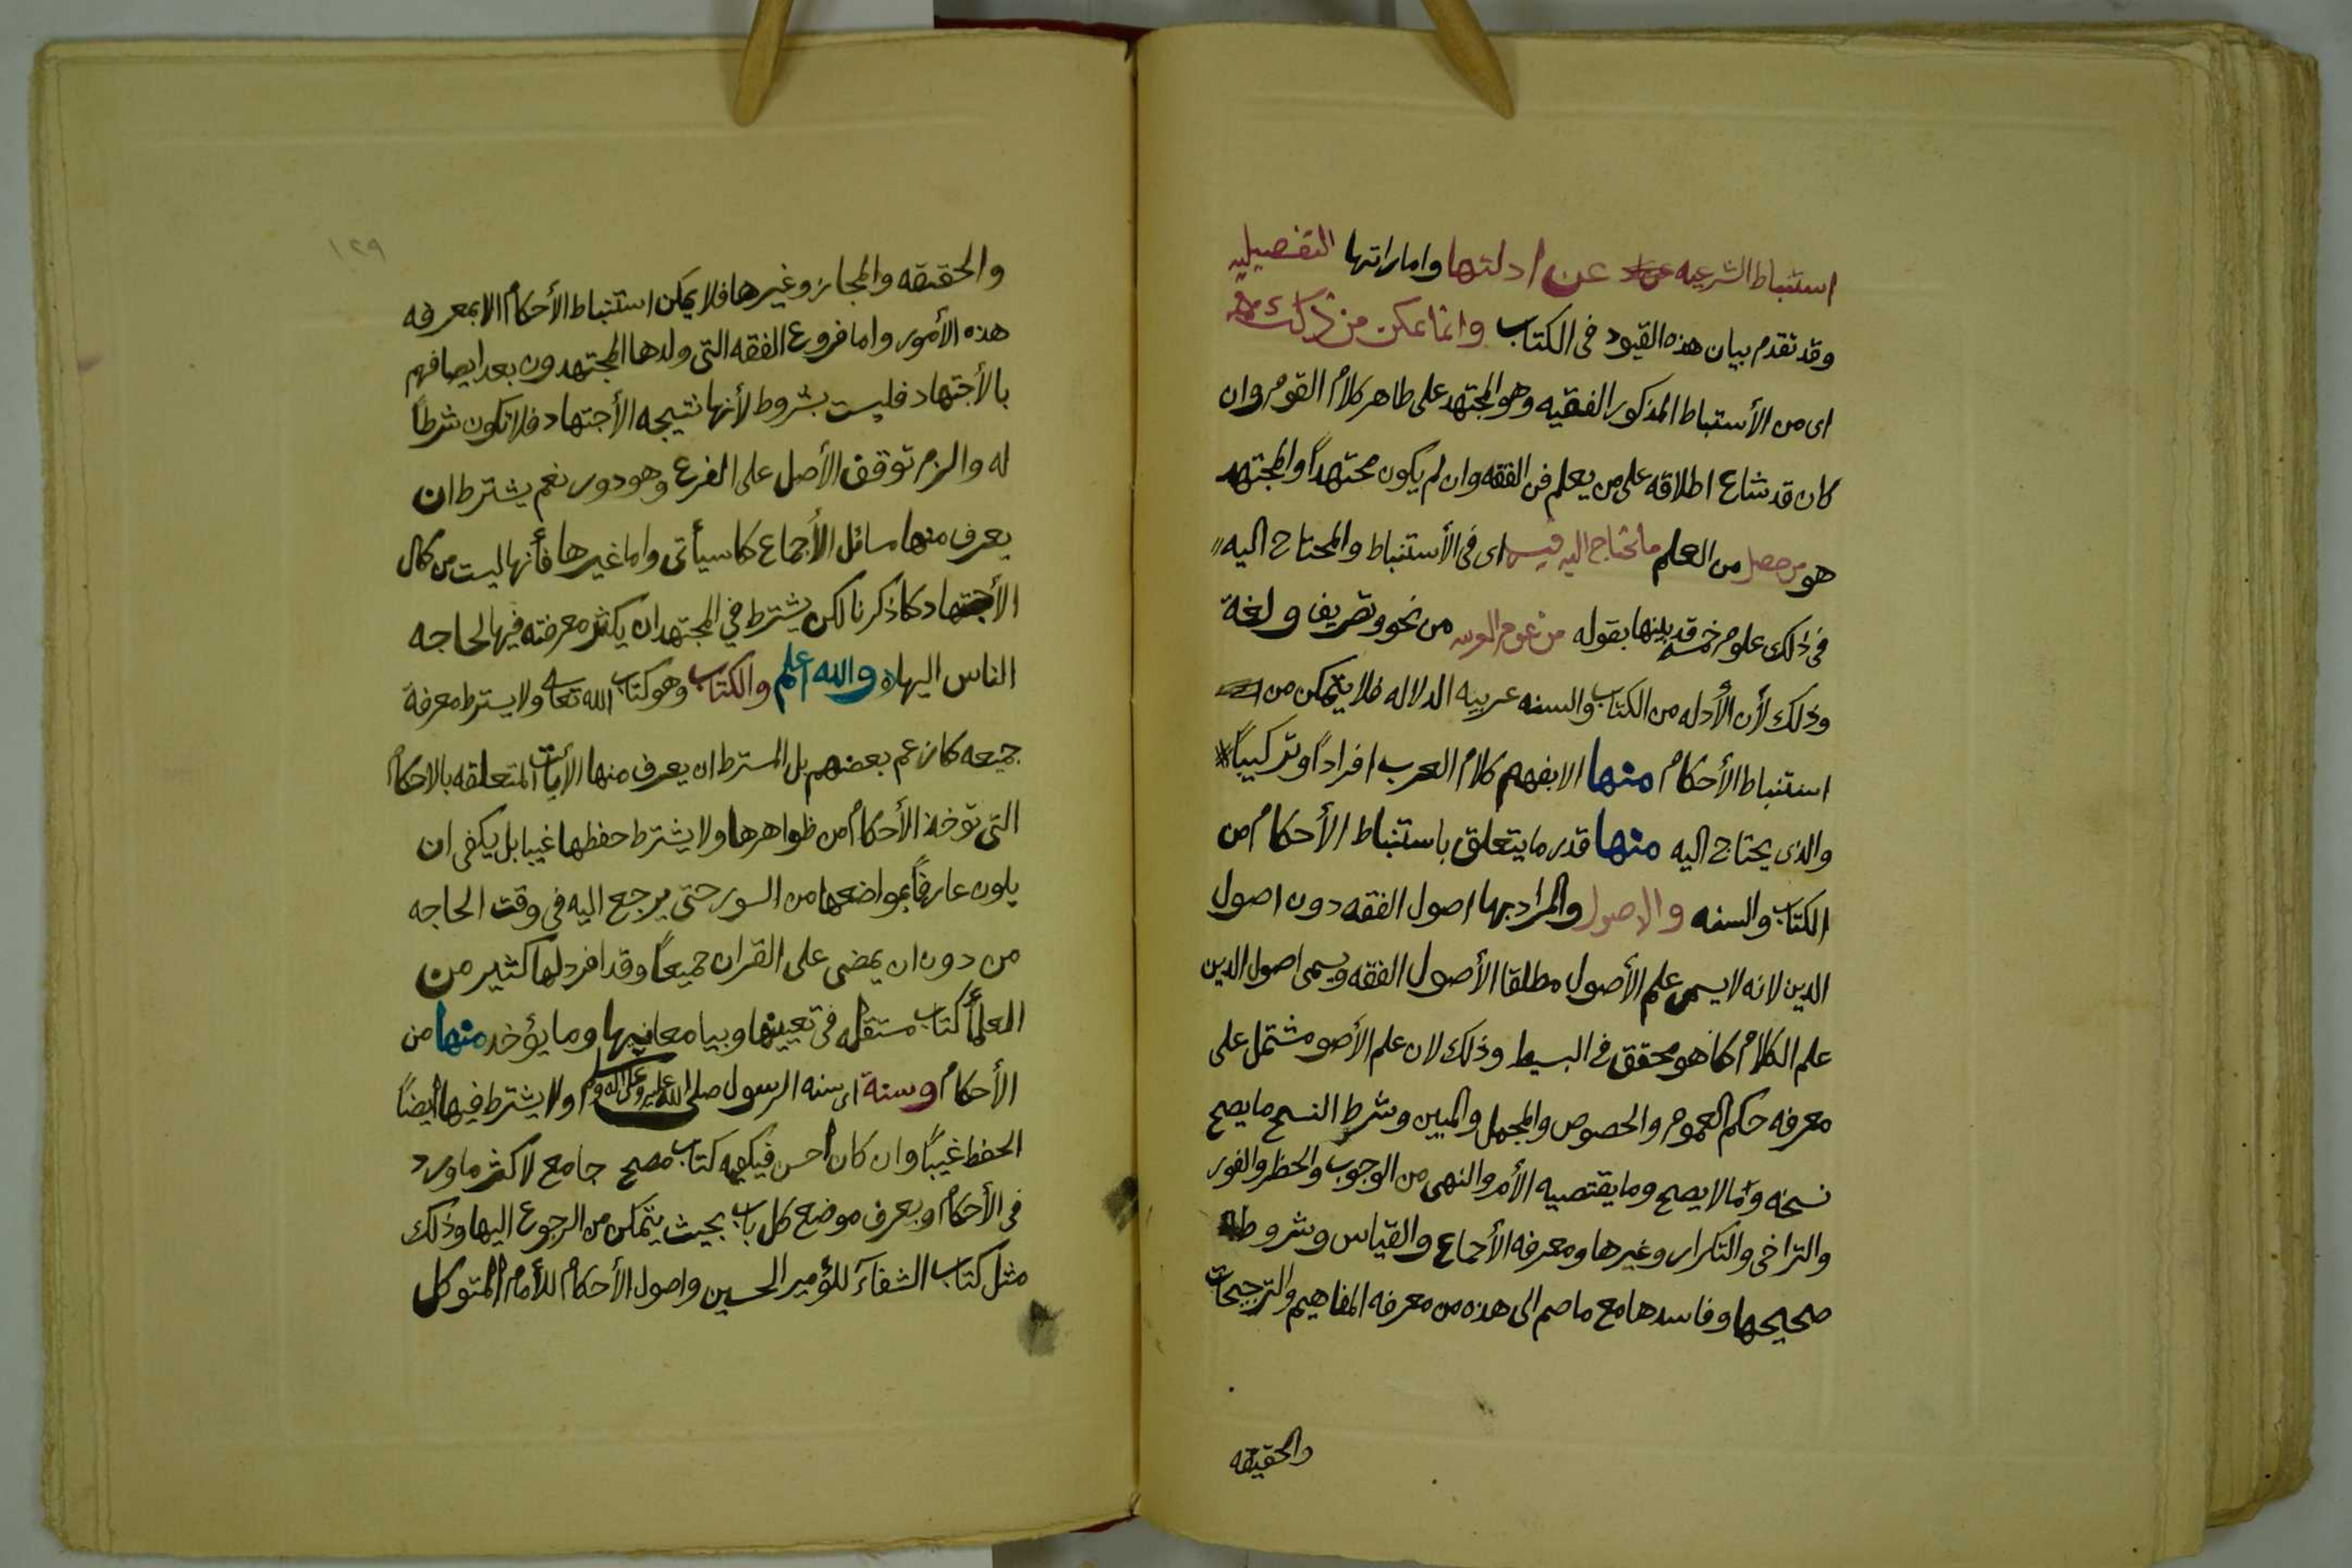 استنباط الشرعيه عن ادلتها واماراتها التفصيليه
وقد تقدم بيان هذه القيود فى الكتاب وانما يمكن من ذلك
اى من الأستباط المذكور الفقيه وهو المجتهد على ظاهر كلام القوم وان
كان قد شاع اطلاقه على من يعلم فن الفقه وان لم يكون مجتهداً والمجتهد
هو من حصل من العلم ما يحتاج اليه فيه اى فى الأستنباط والمحتاج اليه
فى ذلك علوم خمسه قد بينها بقوله من علوم العربيه من نحو وتصريف ولغة
وذلك لأن الأدله من الكتاب والسنه عربيه الدلاله فلا يتمكن من
استنباط الأحكام منها الا بفهم كلام العرب افراداً وتركيباً
والذى يحتاج اليه منها قدر ما يتعلق باستنباط الأحكام من
الكتاب والسنه والاصول والمراد بها اصول الفقه دون اصول
الدين لانه لا يسمى علم الأصول مطلقا الأصول الفقه ويسمى اصول الدين
علم الكلام كما هو محقق فى البسيط وذلك لان علم الأصو مشتمل على
معرفه حكم العموم والخصوص والمجمل والمبين وشرط النسخ ما يصح
نسخه وما لا يصح وما يقتصيه الأمر والنهى من الوجوب والحظر والفور
والتراخى والتكرار وغيرها ومعرفه الأجماع والقياس وشروطه
صحيحها وفاسدها مع ماضم الى هذه من معرفه المفاهيم والترجيحات
والحقيقه
١٢٩
والحقيقه والمجاز وغيرها فلا يمكن استنباط الأحكام الا بمعرفه
هذه الأمور واما فروع الفقه التى ولدها المجتهدون بعد ايصافهم
بالأجتهاد فليست بشروط لأنها نتيجه الأجتهاد فلا تكون شرطاً
له والزم توقف الأصل على الفرع وهو دور نعم يشترط ان
يعرف منها مسائل الأجماع كما سيأتى واما غيرها فأنها ليست من كمال
الأجتهاد كما ذكرنا لكن يشترط في المجتهد ان يكثر معرفته فيها لحاجه
الناس اليها والله أعلم والكتاب وهو كتاب الله تعالى ولا يسترط معرفة
جميعه كما زعم بعضهم بل المسترط ان يعرف منها الأيات المتعلقه بالاحكام
التى توخذ الأحكام من ظواهرها ولا يشترط حفظها غيبا بل يكفى ان
يكون عارفاً بمواضعها من السور حتى يرجع اليه فى وقت الحاجه
من دون ان يمضى على القران جميعاً وقد افرد لها كثير من
العلمأ كتاب مستقله فى تعيينها وبيا معانيها وما يؤخد منها من
الأحكام وسنة اى سنه الرسول صلى الله عليه وعلى اله وسلم ولا يشترط فيها ايضاً
الحفظ غيباً وان كان احسن فيكفيه كتاب مصحح جامع لاكثر ماورد
فى الأحكام ويعرف موضع كل باب بحيث يتمكن من الرجوع اليها وذلك
مثل كتاب الشفاء للؤمير الحسين واصول الأحكام للأمام المتوكل